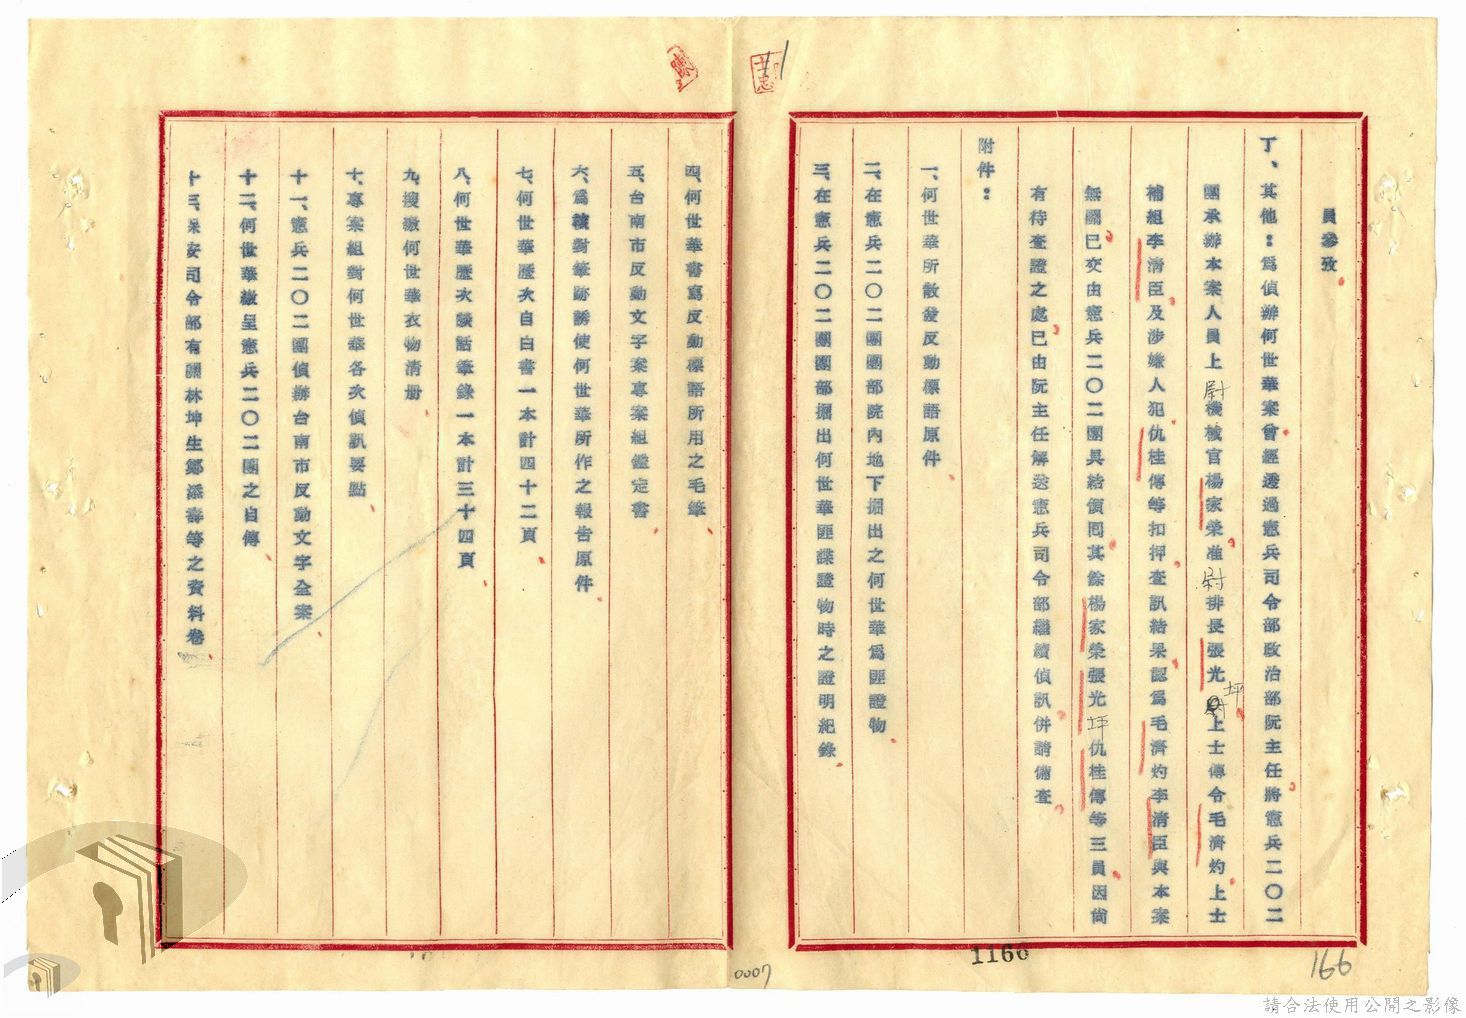 員參攷
丁、其他：爲偵辦何世華案曾經透過憲兵司令部政治部阮主任將憲兵二〇二
團承辦本案人員上尉機械官楊家榮准尉排長張光坪上士傳令毛濟灼上士
補組李清臣及涉嫌人犯仇桂傳等扣押查訊結果認爲毛濟灼李清臣與本案
無關已交由憲兵二〇二團具結領回其餘楊家榮張光坪仇桂傳等三員因尚
有待查證之處已由阮主任解送憲兵司令部繼續偵訊併請備查
附件：
一、何世華所散發反動標語原件
二、在憲兵二〇二團團部院內地下掘出之何世華爲匪證物
三、在憲兵二〇二團團部掘出何世華匪諜證物時之證明紀錄
四、何世華書寫反動標語所用之毛筆
五、台南市反動文字案專案組鑑定書
六、爲核對筆跡誘使何世華所作之報告原件
七、何世華歷次自白書一本計四十二頁
八、何世華歷次談話筆錄一本計三十四頁
九、搜繳何世華衣物清册
十、專案組對何世華各次偵訊要點
十一、憲兵二〇二團偵辦台南市反動文字全案
十二、何世華繳呈憲兵二〇二團之自傳
十三、保安司令部有關林坤生鄭添壽等之資料卷
1166
166
0007
請合法使用公開之影像